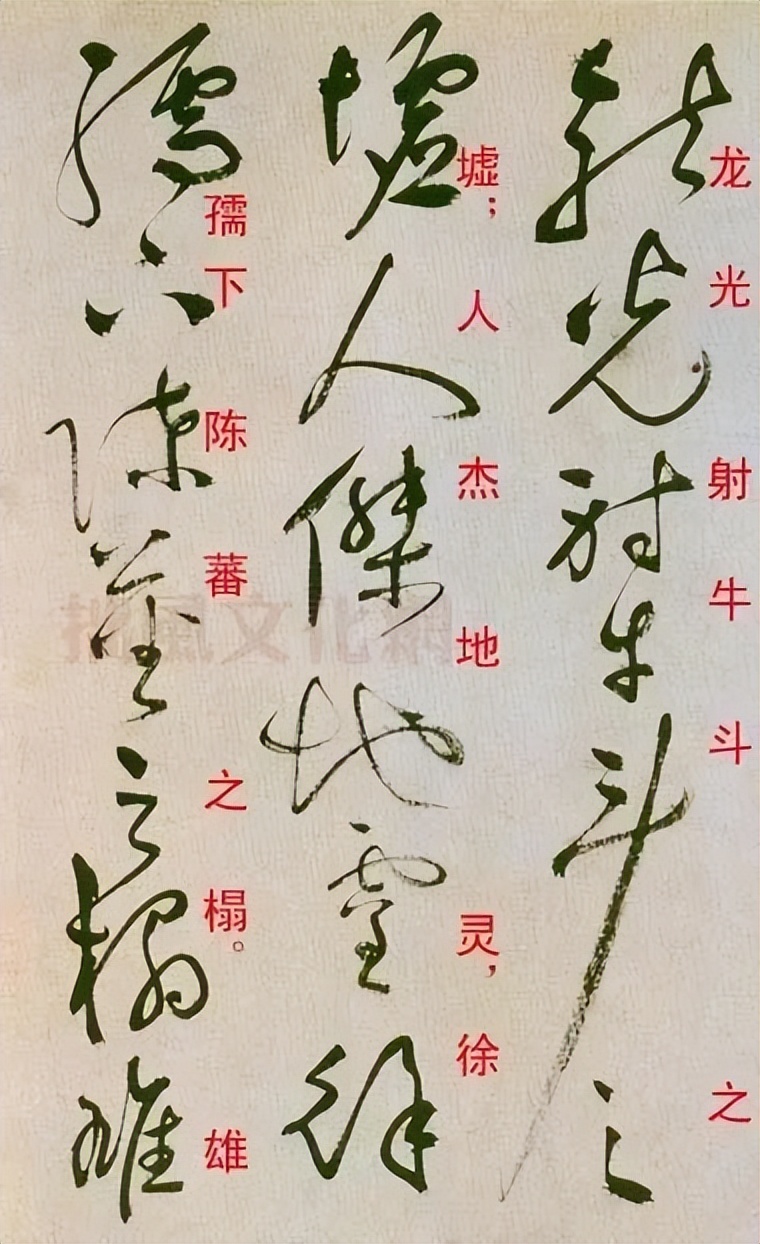 龙光射牛斗之
龍光射牛斗之
墟；人杰地灵，徐
墟人傑地靈徐
孺下陈蕃之榻。雄
孺下陳蕃之榻雄
文化網